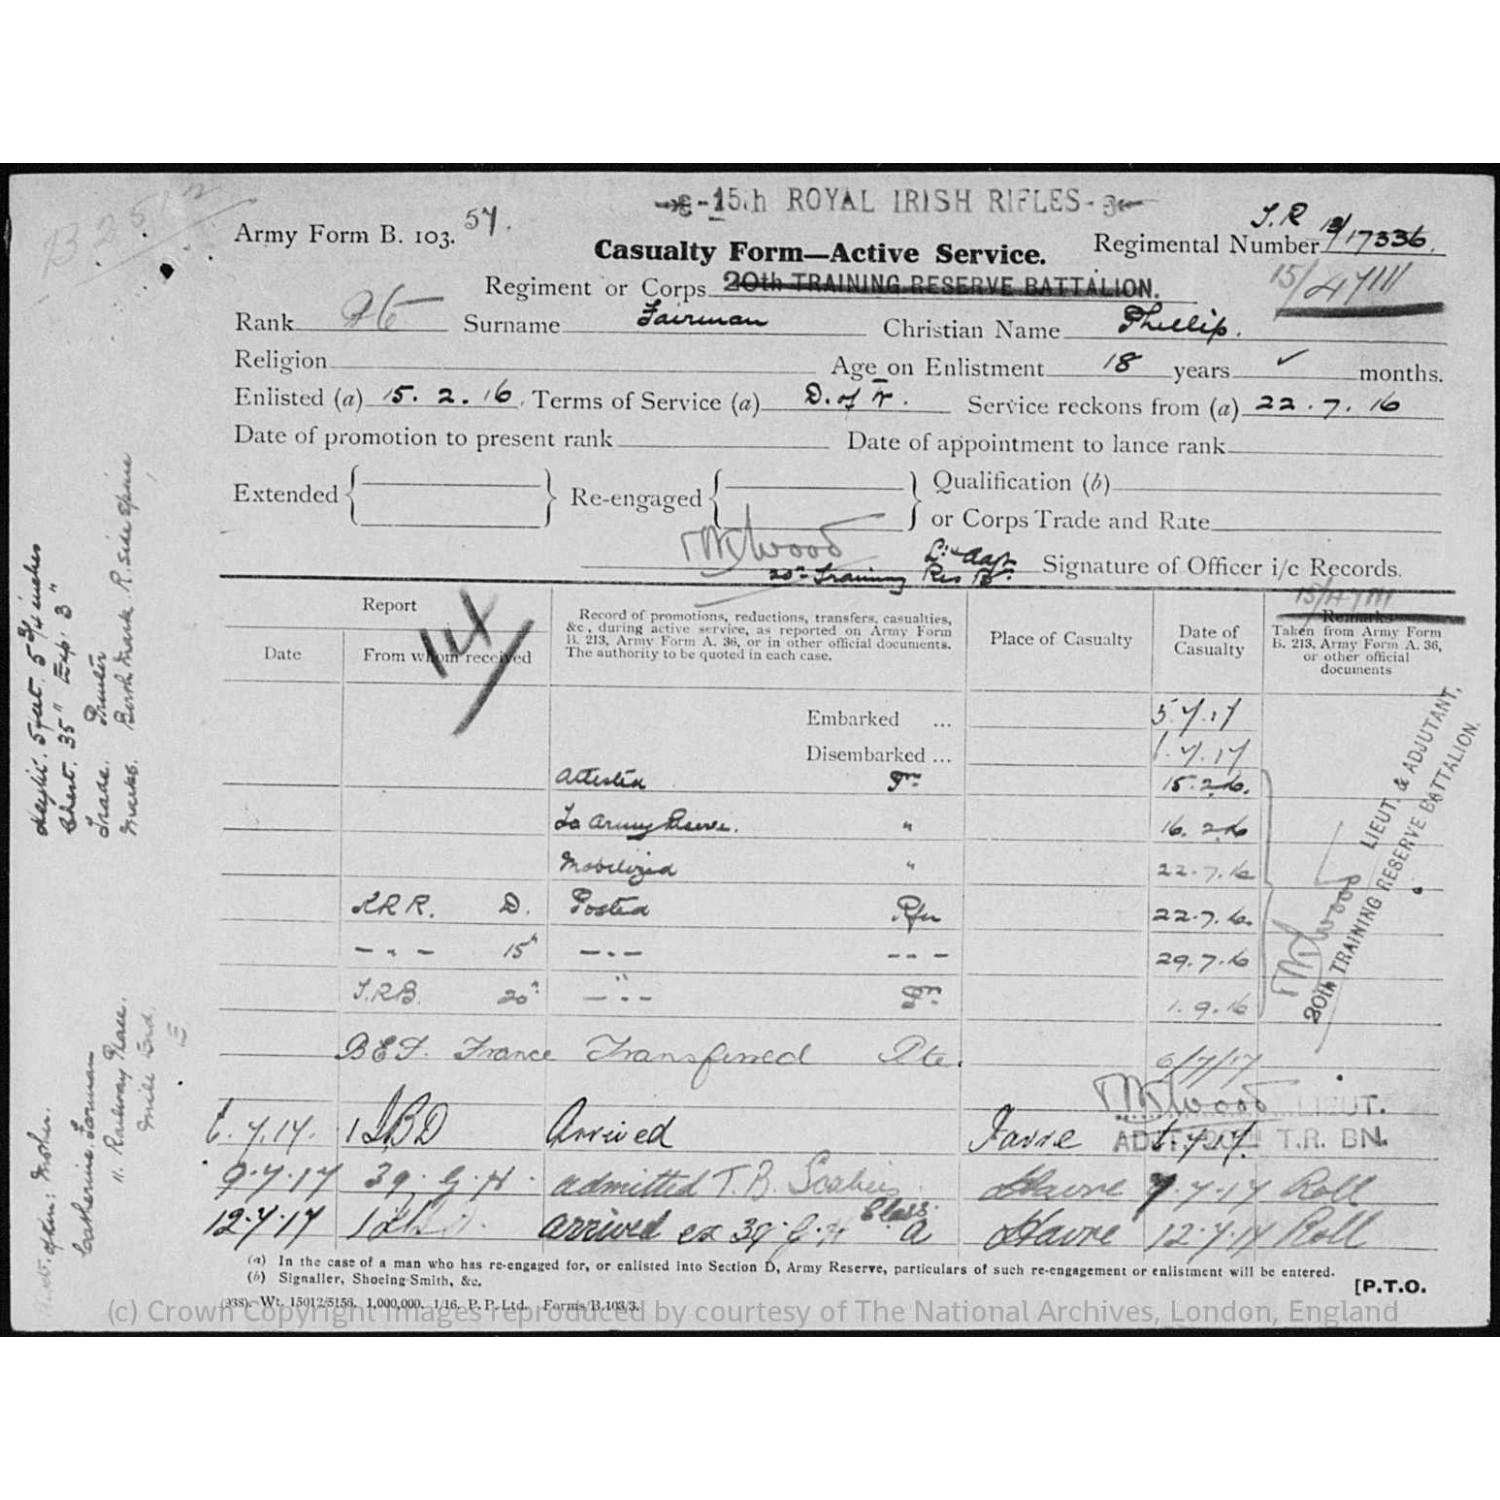 B 2512
-15th ROYAL IRISH RIFLES-
Army Form B. 103. 57.
Casualty Form—Active Service.
T.R 13/17336.
Regimental Number
15/47111
Regiment or Corps 20th TRAINING RESERVE BATTALION.
Rank Pte Surname Fairman Christian Name Phillip.
Religion Age on Enlistment 18 years ✓ months.
Enlisted (a) 15. 2. 16. Terms of Service (a) D. of W. Service reckons from (a) 22. 7. 16
Date of promotion to present rank Date of appointment to lance rank
Extended Re-engaged Qualification (b)
or Corps Trade and Rate
Lt & Adjt
20th Training Res Bn. Signature of Officer i/c Records.
15/47111
Report
Date From whom received
Record of promotions, reductions, transfers, casualties, &c., during active service, as reported on Army Form B. 213, Army Form A. 36, or in other official documents. The authority to be quoted in each case.
Place of Casualty
Date of Casualty
Remarks
Taken from Army Form B. 213, Army Form A. 36, or other official documents
Embarked ... 5.7.17
Disembarked ... 6.7.17
Attested 15.2.16.
To Army Reserve. " 16. 2.16
Mobilized " 22.7.16
K.R.R. D. Posted Rfn 22.7.16.
- " - 15th - " - - - - 29.7.16
T.R.B. 20th - " - 1.9.16
B.E.F. France Transferred Pte. 6/7/17
LIEUT. & ADJUTANT,
20th TRAINING RESERVE BATTALION.
LIEUT.
ADJT. 20th T.R. BN.
6.7.17. 1 IBD Arrived Havre 6.7.17.
9.7.17 39. G. H. admitted T.B. Scabies Havre 7.7.17 Roll
12.7.17 1 IBD. arrived ex 39. G. H Class A Havre 12.7.17 Roll
(a) In the case of a man who has re-engaged for, or enlisted into Section D, Army Reserve, particulars of such re-engagement or enlistment will be entered.
(b) Signaller, Shoeing-Smith, &c.
[P.T.O.
(938). Wt. 15012/5156. 1,000,000. 1/16. P. P. Ltd. Forms/B.103/3.
Height. 5 feet. 5 3/4 inches
Chest. 35" Exp. 3"
Trade. Printer
Marks. Birth Mark. R. side Spine
Next. of kin: Mother.
Catherine. Fairman
11. Railway Place.
Mile End.
E
(c) Crown Copyright Images reproduced by courtesy of The National Archives, London, England